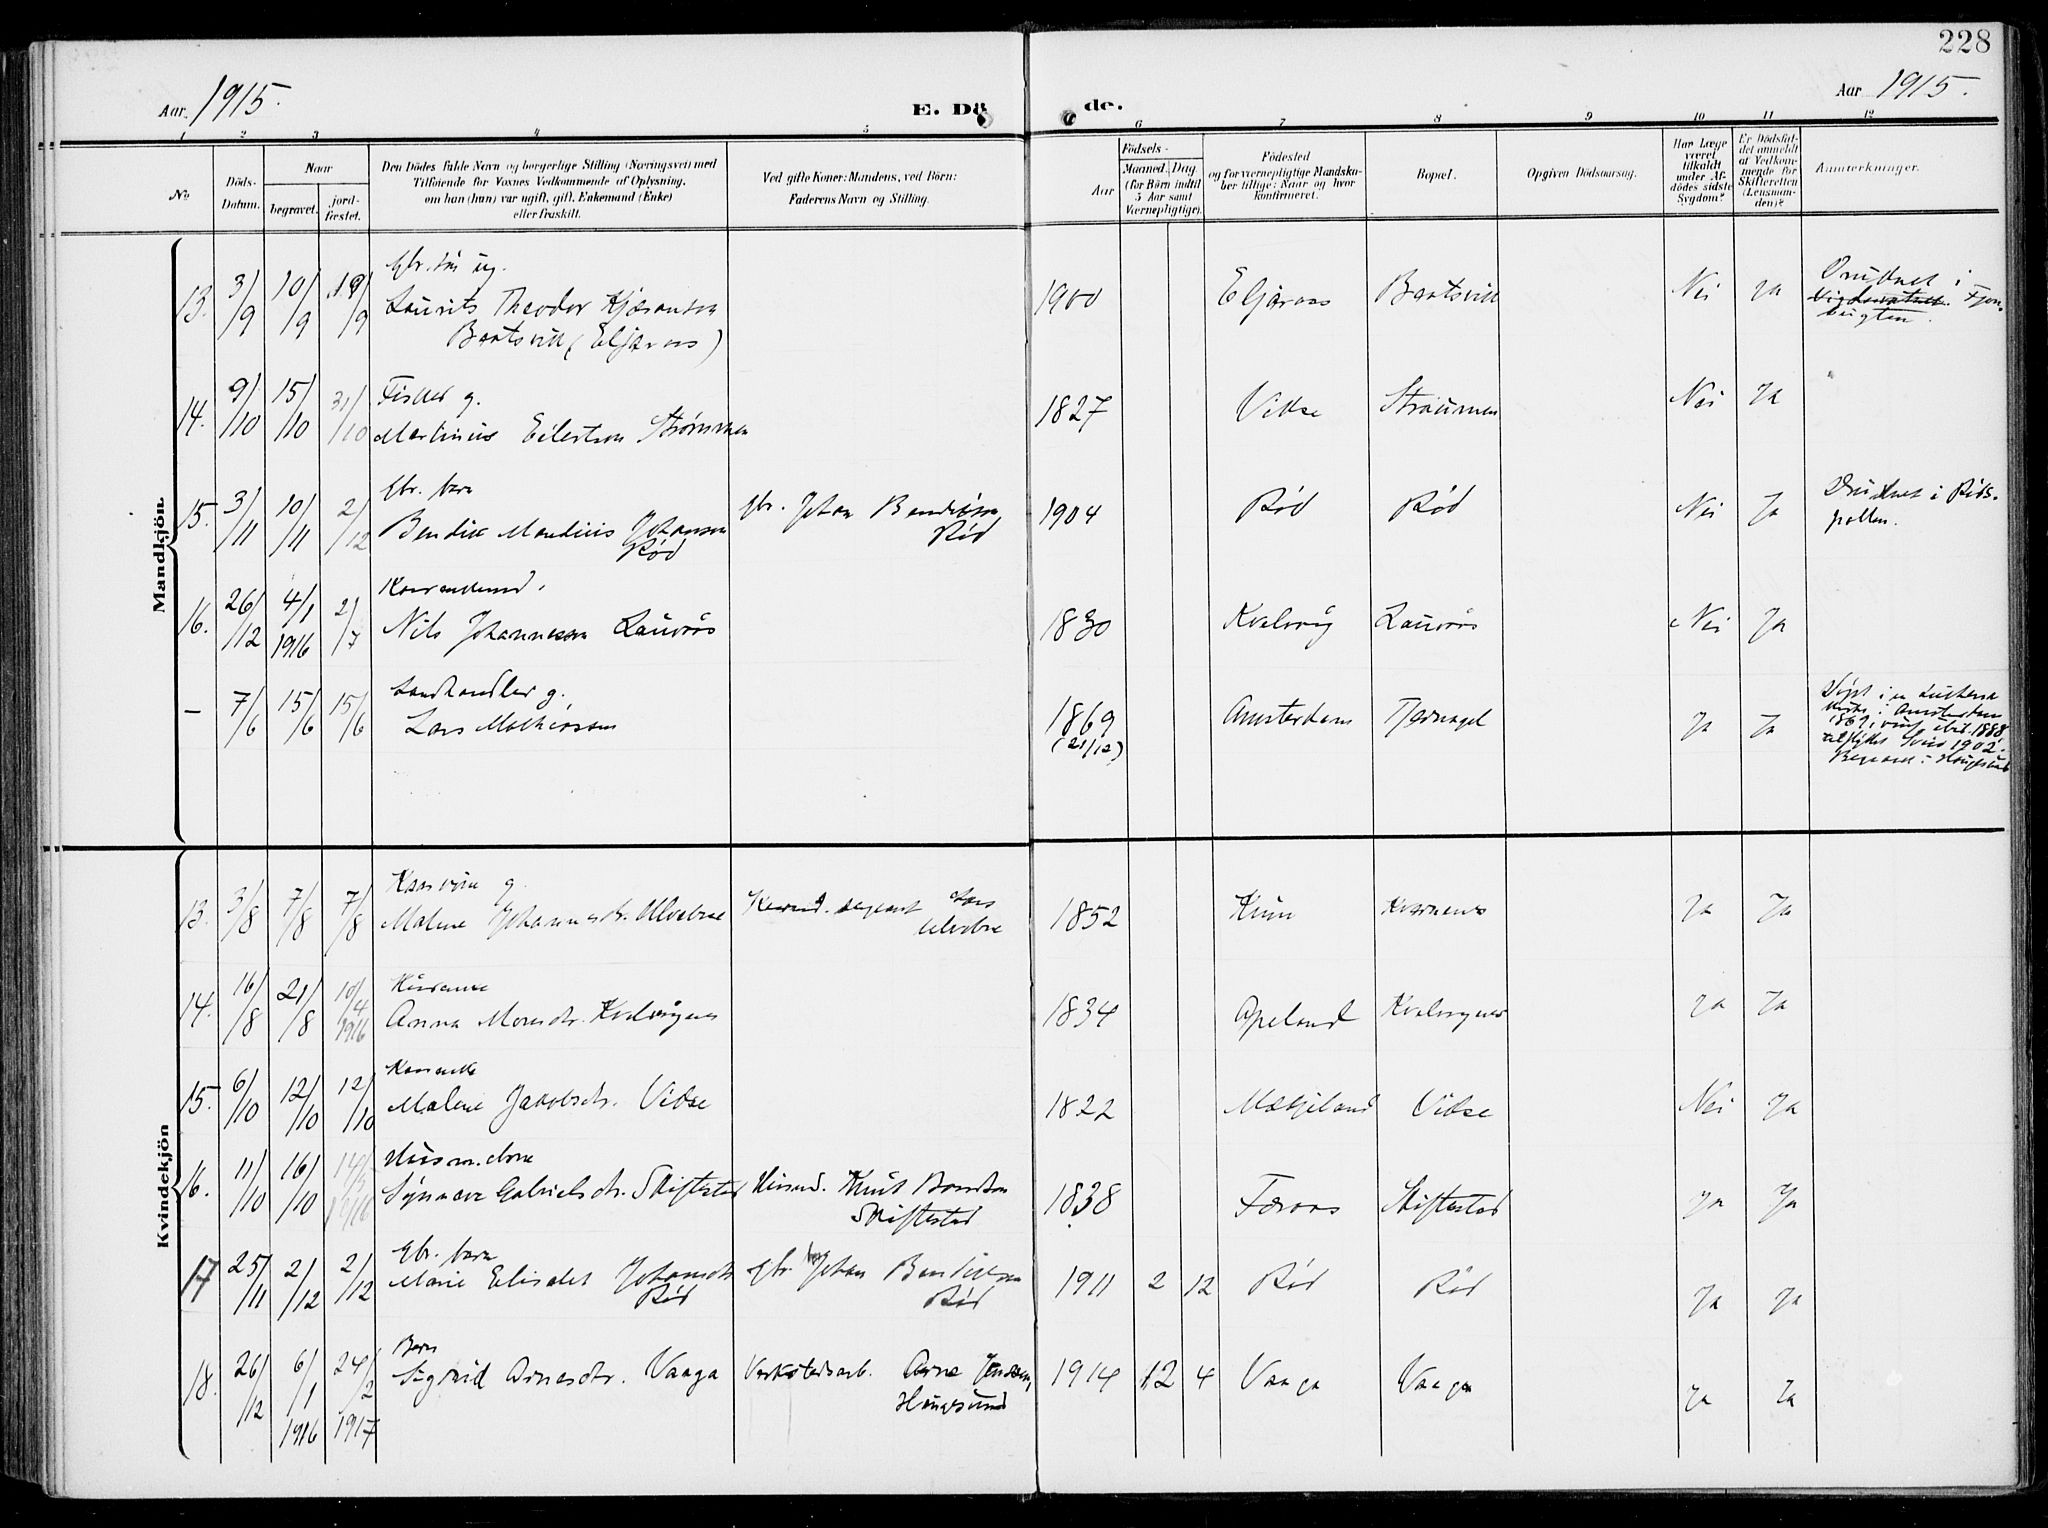 228
Aar 1915.
E. Dö de.
Aar 1915.
1 2 3 4 5 6 7 8 9 10 11 12
No
Döds-
Datum.
Naar
begravet.
jord-
fæstet.
Den Dödes fulde Navn og borgerlige Stilling (Næringsvei) med
Tilföiende for Voxnes Vedkommende af Oplysning,
om han (hun) var ugift, gift, Enkemand (Enke)
eller fraskilt.
Ved gifte Koner: Mandens, ved Börn:
Faderens Navn og Stilling.
Födsels-
Aar
Maaned. Dag
(for Börn indtil
5 Aar samt
Værnepligtige).
Födested
og for værnepligtige Mandska-
ber tillige: Naar og hvor
konfirmeret.
Bopæl.
Opgiven Dödsaarsag.
Har Læge
været
tilkaldt
under Af-
dödes sidste
Sygdom?
Er Dödsfal-
det anmeldt
af Vedkom-
mende for
Skifteretten
(Lensman-
den)?
Anmærkninger.
Mandkjön.
13. 3/9 10/9 19/9 Gbr. sön ug.
Laurits Theodor
Baatsvik (Eljaraas)
1900 Eljaraas Baatsvik Nei Ja
Druknet i
bugten.
14. 9/10 15/10 31/10 Fisker g.
Martinius Eilertsen Strømmen
1827 Vikse Straumen Nei Ja
15. 3/11 10/11 2/12 Gbr. barn
Bendix Johansen
Rød
Gbr. Johan Bendixsen
Rød
1904 Rød Rød Nei Ja
Druknet i Røds-
pollen.
16. 26/12 4/1 1916 2/7
Nils Johannessen Lauvås
1830 Kvalvåg Lauvås Nei Ja
– 7/6 15/6 15/6 Landhandler g.
Lars
1869
(21/12)
Amsterdam Tjernagel Ja Ja
Døpt i en Luthersk
Kirke i Amsterdam
1869,
tilflyttet Sveio 1902.
Begravet i Haugesund
Kvindekjön
13. 3/8 7/8 7/8 Kaarkone g.
Malene Johannesdr. Ulvebne
Lars
Ulvebne
1852 Ja Ja
14. 16/8 21/8 10/4 1916
Anna Monsdr. Kvalvågnes
1834 Apeland Kvalvagnes Ja Ja
15. 6/10 12/10 12/10 Kaarenke
Malene Jakobsdr. Vikse
1822 Mækjeland Vikse Nei Ja
16. 11/10 16/10 14/5 1916 Husm. kone
Synnøve Gabrielsdr. Skiftestad
Husmd. Knut
Skiftestad
1838 Færaas Skiftestad Ja Ja
17 25/11 2/12 2/12 Gbr. barn
Marie Elisabet Johansdr
Rød
Gbr. Johan Bendixsen
Rød
1911 2 12 Rød Rød Ja Ja
18. 26/12 6/1 1916 24/2 1917 Barn
Sigrid Arnesdr. Vaaga
Verkstedsarb. Arne Jensen,
Haugesund
1914 12 4 Vaaga Vaaga Ja Ja